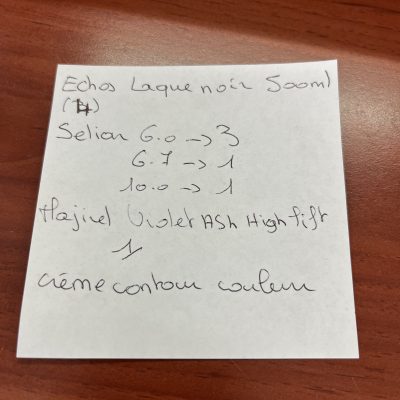 Echos Laque noir 500ml
(4)
Selian 6.0 -> 3
6.7 -> 1
10.0 -> 1
Hajirel Violet Ash High fift
1
crème contour couleur